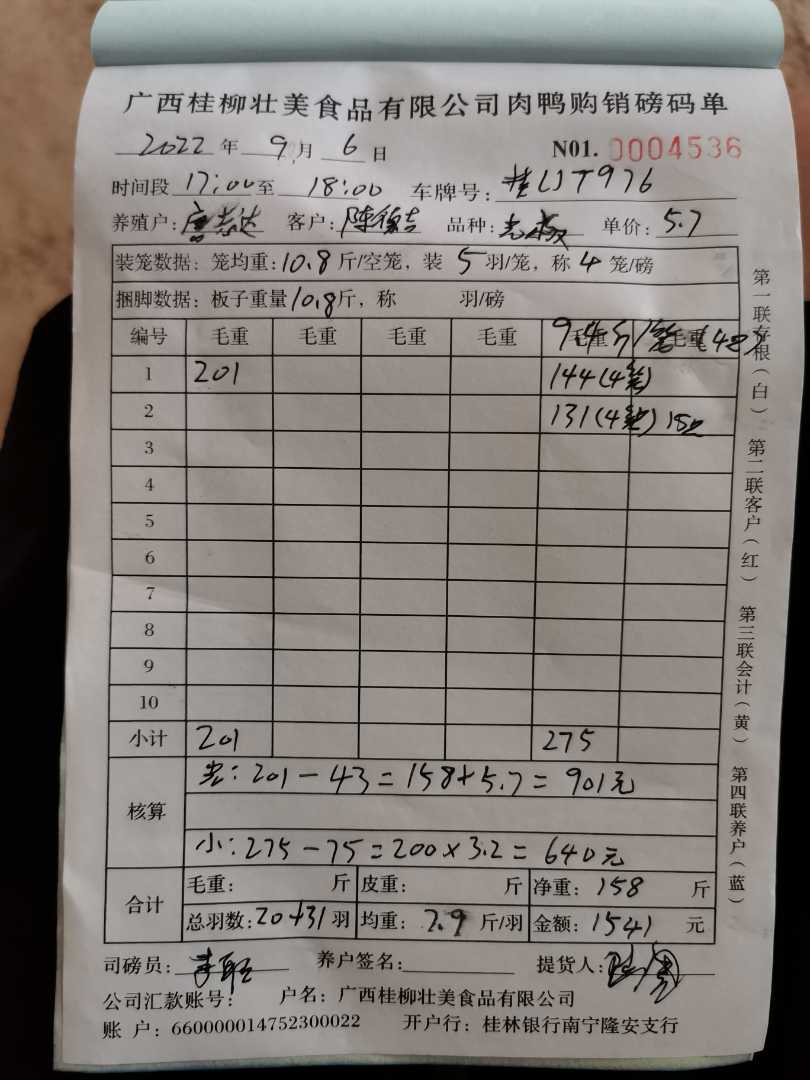 广西桂柳壮美食品有限公司肉鸭购销磅码单
2022年 9月 6日 N01. 0004536
时间段 17:00至 18:00 车牌号: 桂LJT976
养殖户: 客户: 品种: 单价: 5.7
装笼数据: 笼均重:10.8斤/空笼, 装 5 羽/笼, 称 4 笼/磅
捆脚数据: 板子重量10.8斤, 称 羽/磅
编号 毛重 毛重 毛重 毛重 毛重 毛重
1 201 144(4笼)
2 131(4笼)
3
4
5
6
7
8
9
10
小计 201 275
核算
光: 201-43=158+5.7=901元
小: 275-75=200×3.2=640元
合计
毛重: 斤 皮重: 斤 净重: 158 斤
总羽数: 20+31 羽 均重: 7.9 斤/羽 金额: 1541 元
司磅员: 养户签名: 提货人:
公司汇款账号: 户名: 广西桂柳壮美食品有限公司
账 户: 660000014752300022 开户行: 桂林银行南宁隆安支行
第一联存根(白) 第二联客户(红) 第三联会计(黄) 第四联养户(蓝)